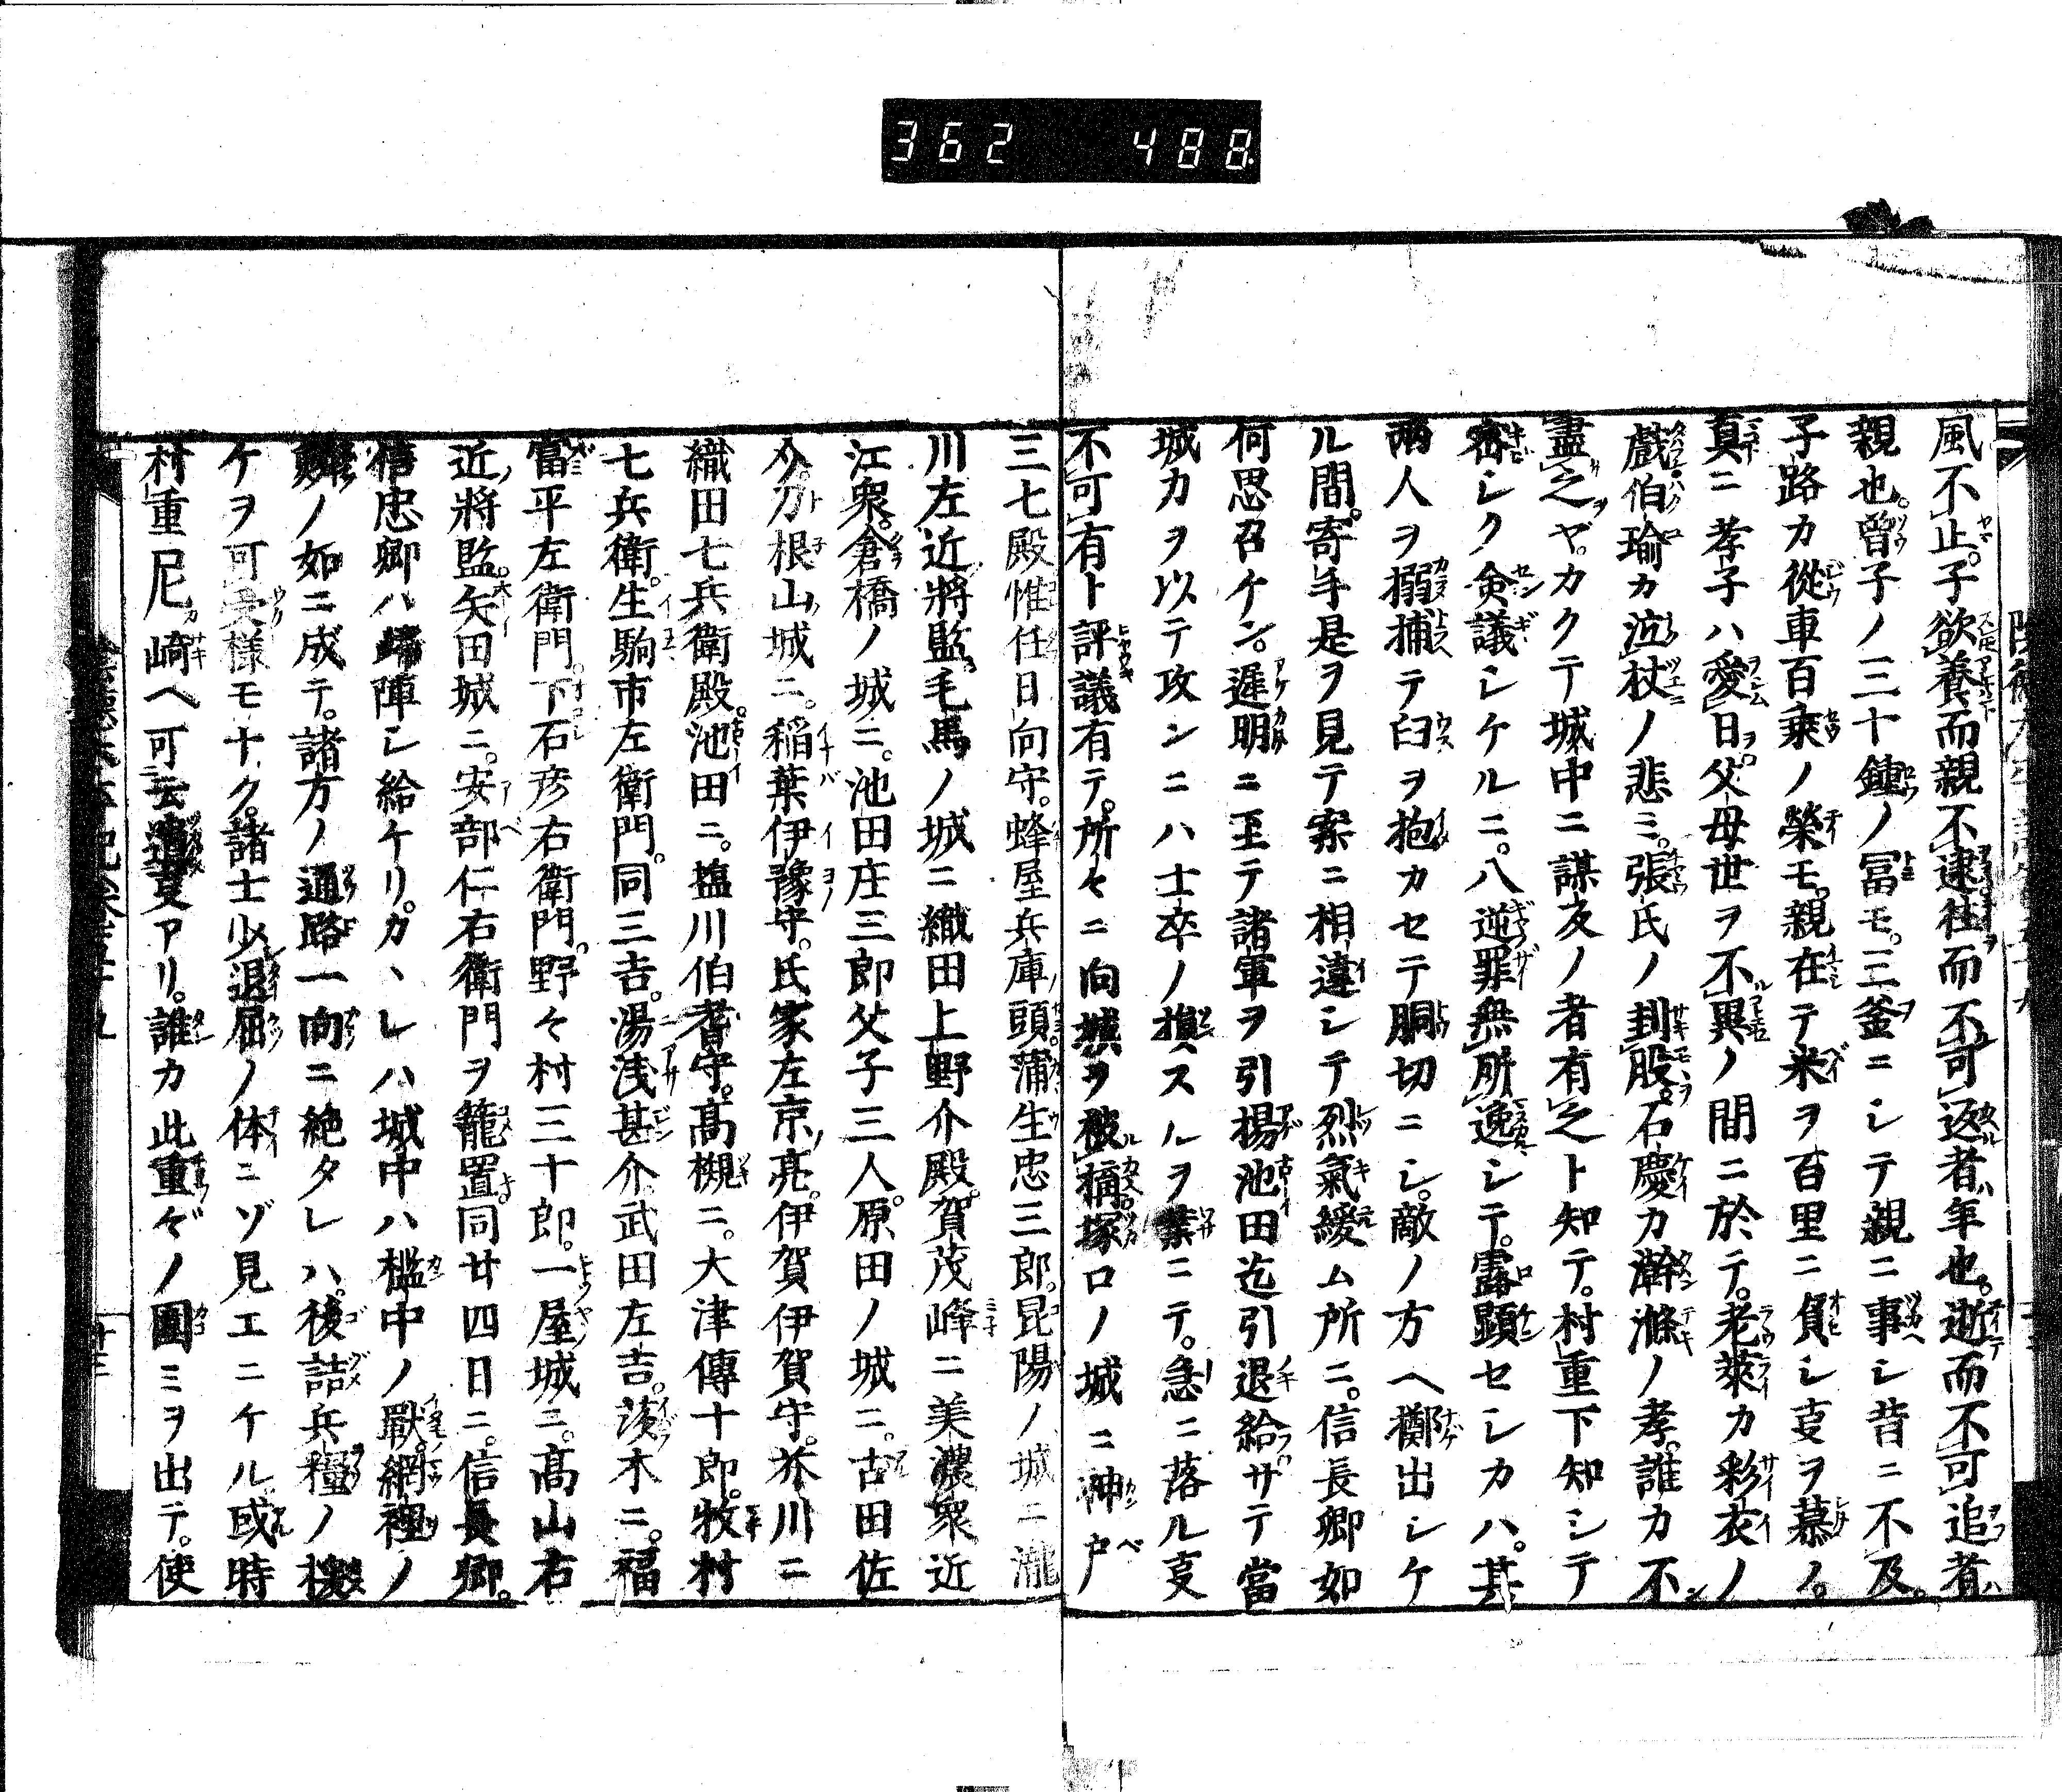 362 488
風不止。子欲養而親不逮往而不可返者年也。逝而不可追者
親也。曾子ノ三十鍾ノ冨モ。三釜ニシテ親ニ事シ昔ニ不及。
子路カ從車百乘ノ榮モ。親在テ米ヲ百里ニ負シ㕝ヲ慕ノ。
真ニ孝子ハ愛日父母世ヲ不異ノ間ニ於テ。老萊カ彩衣ノ
戲伯瑜カ泣杖ノ悲ミ。張氏ノ刲股。石慶カ澣滌ノ孝。誰カ不
盡之ヤ。カクテ城中ニ謀反ノ者有之ト知テ。村重下知シテ
密シク僉議シケルニ。八逆罪無所逸シテ。露顕セシカハ。其
兩人ヲ搦捕テ臼ヲ抱カセテ胴切ニシ。敵ノ方ヘ擲出シケ
ル間。寄手是ヲ見テ案ニ相違シテ烈氣緩ム所ニ。信長卿如
何思召ケン。遲明ニ至テ諸軍ヲ引揚池田迄引退給サテ當
城力ヲ以テ攻ンニハ士卒ノ損スルヲ業ニテ。急ニ落ル㕝
不可有ト評議有テ。所々ニ向城ヲ被構。塚口ノ城ニ神戸
三七殿惟任日向守。蜂屋兵庫頭蒲生忠三郎。昆陽ノ城ニ瀧
川左近將監。毛馬ノ城ニ織田上野介殿。賀茂峰ニ美濃衆近
江衆。倉橋ノ城ニ。池田庄三郎父子三人。原田ノ城ニ。古田佐
介。刀根山城ニ。稲葉伊豫守。氏家左京亮。伊賀伊賀守。芥川ニ
織田七兵衛殿。池田ニ。塩川伯耆守。髙槻ニ。大津傳十郎。牧村
七兵衛。生駒市左衛門。同三吉。湯浅甚介武田左吉。茨木ニ。福
富平左衛門。下石彦右衛門。野々村三十郎。一屋城ニ。髙山右
近將監。矢田城ニ。安部仁右衛門ヲ籠置。同廿四日ニ。信長卿。
信忠卿ハ歸陣シ給ケリ。カヽレハ城中ハ檻中ノ獸。網裡ノ
ノ如ニ成テ。諸方ノ通路一向ニ絶タレハ。後詰兵糧ノ機
ケヲ可受様モナク。諸士少退屈ノ体ニゾ見エニケル或時
村重尼崎ヘ可云遣㕝アリ。誰カ此重々ノ圍ミヲ出テ。使